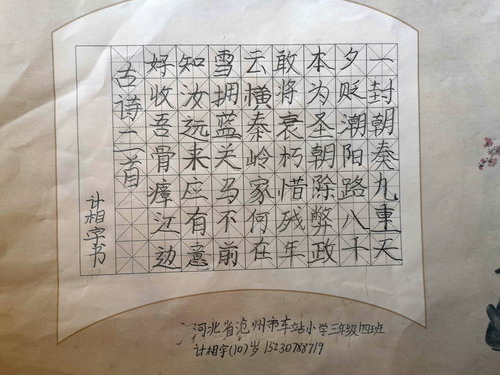 一封朝奏九重天
夕贬潮阳路八十
本为圣朝除弊政
敢将衰朽惜残年
云横秦岭家何在
雪拥蓝关马不前
知汝远来应有意
好收吾骨瘴江边
古诗二首
计相宇书
河北省沧州市车站小学三年级四班
计相宇(10)岁 15230788719